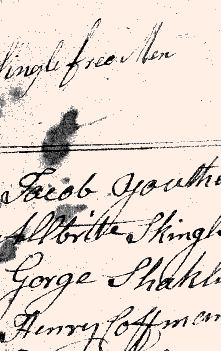 Single freo Men
Jacob Youthe
Allbrite Skingl
Gorge Shakl
Henry Coffman